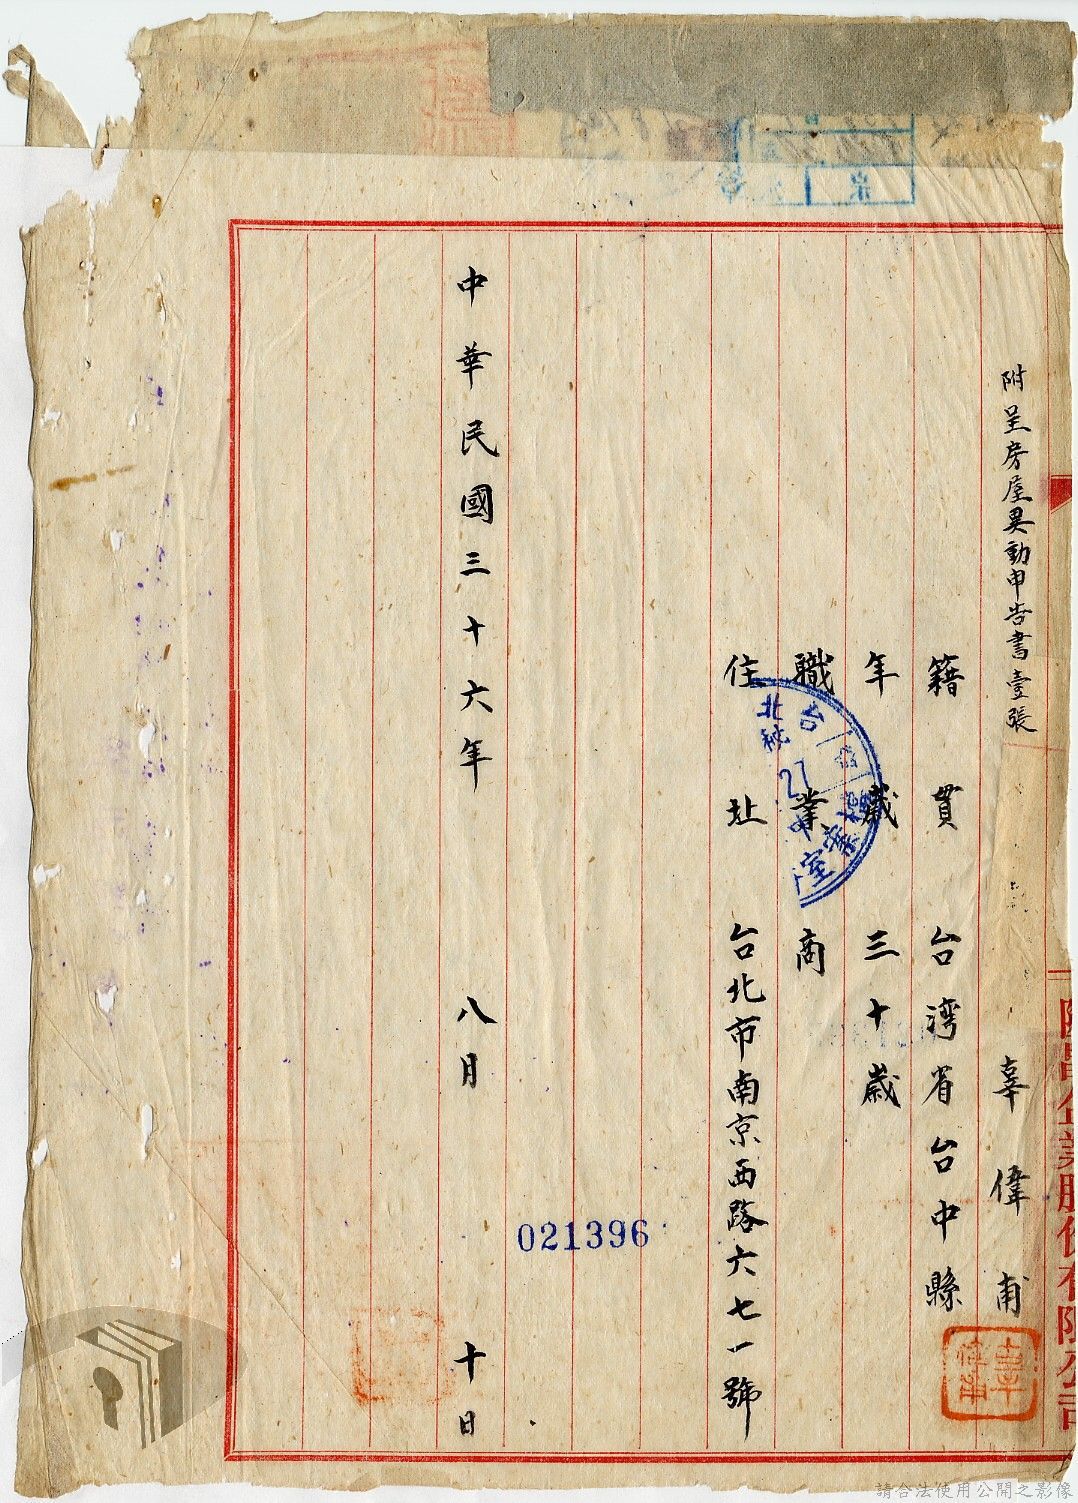 附呈房屋異動申告書壹張
辜偉甫
籍貫 台湾省台中縣
年歲 三十歲
職業 商
住址 台北市南京西路六七一號
中華民國三十六年 八月 十日
021396
27
份有限公司
請合法使用公開之影像